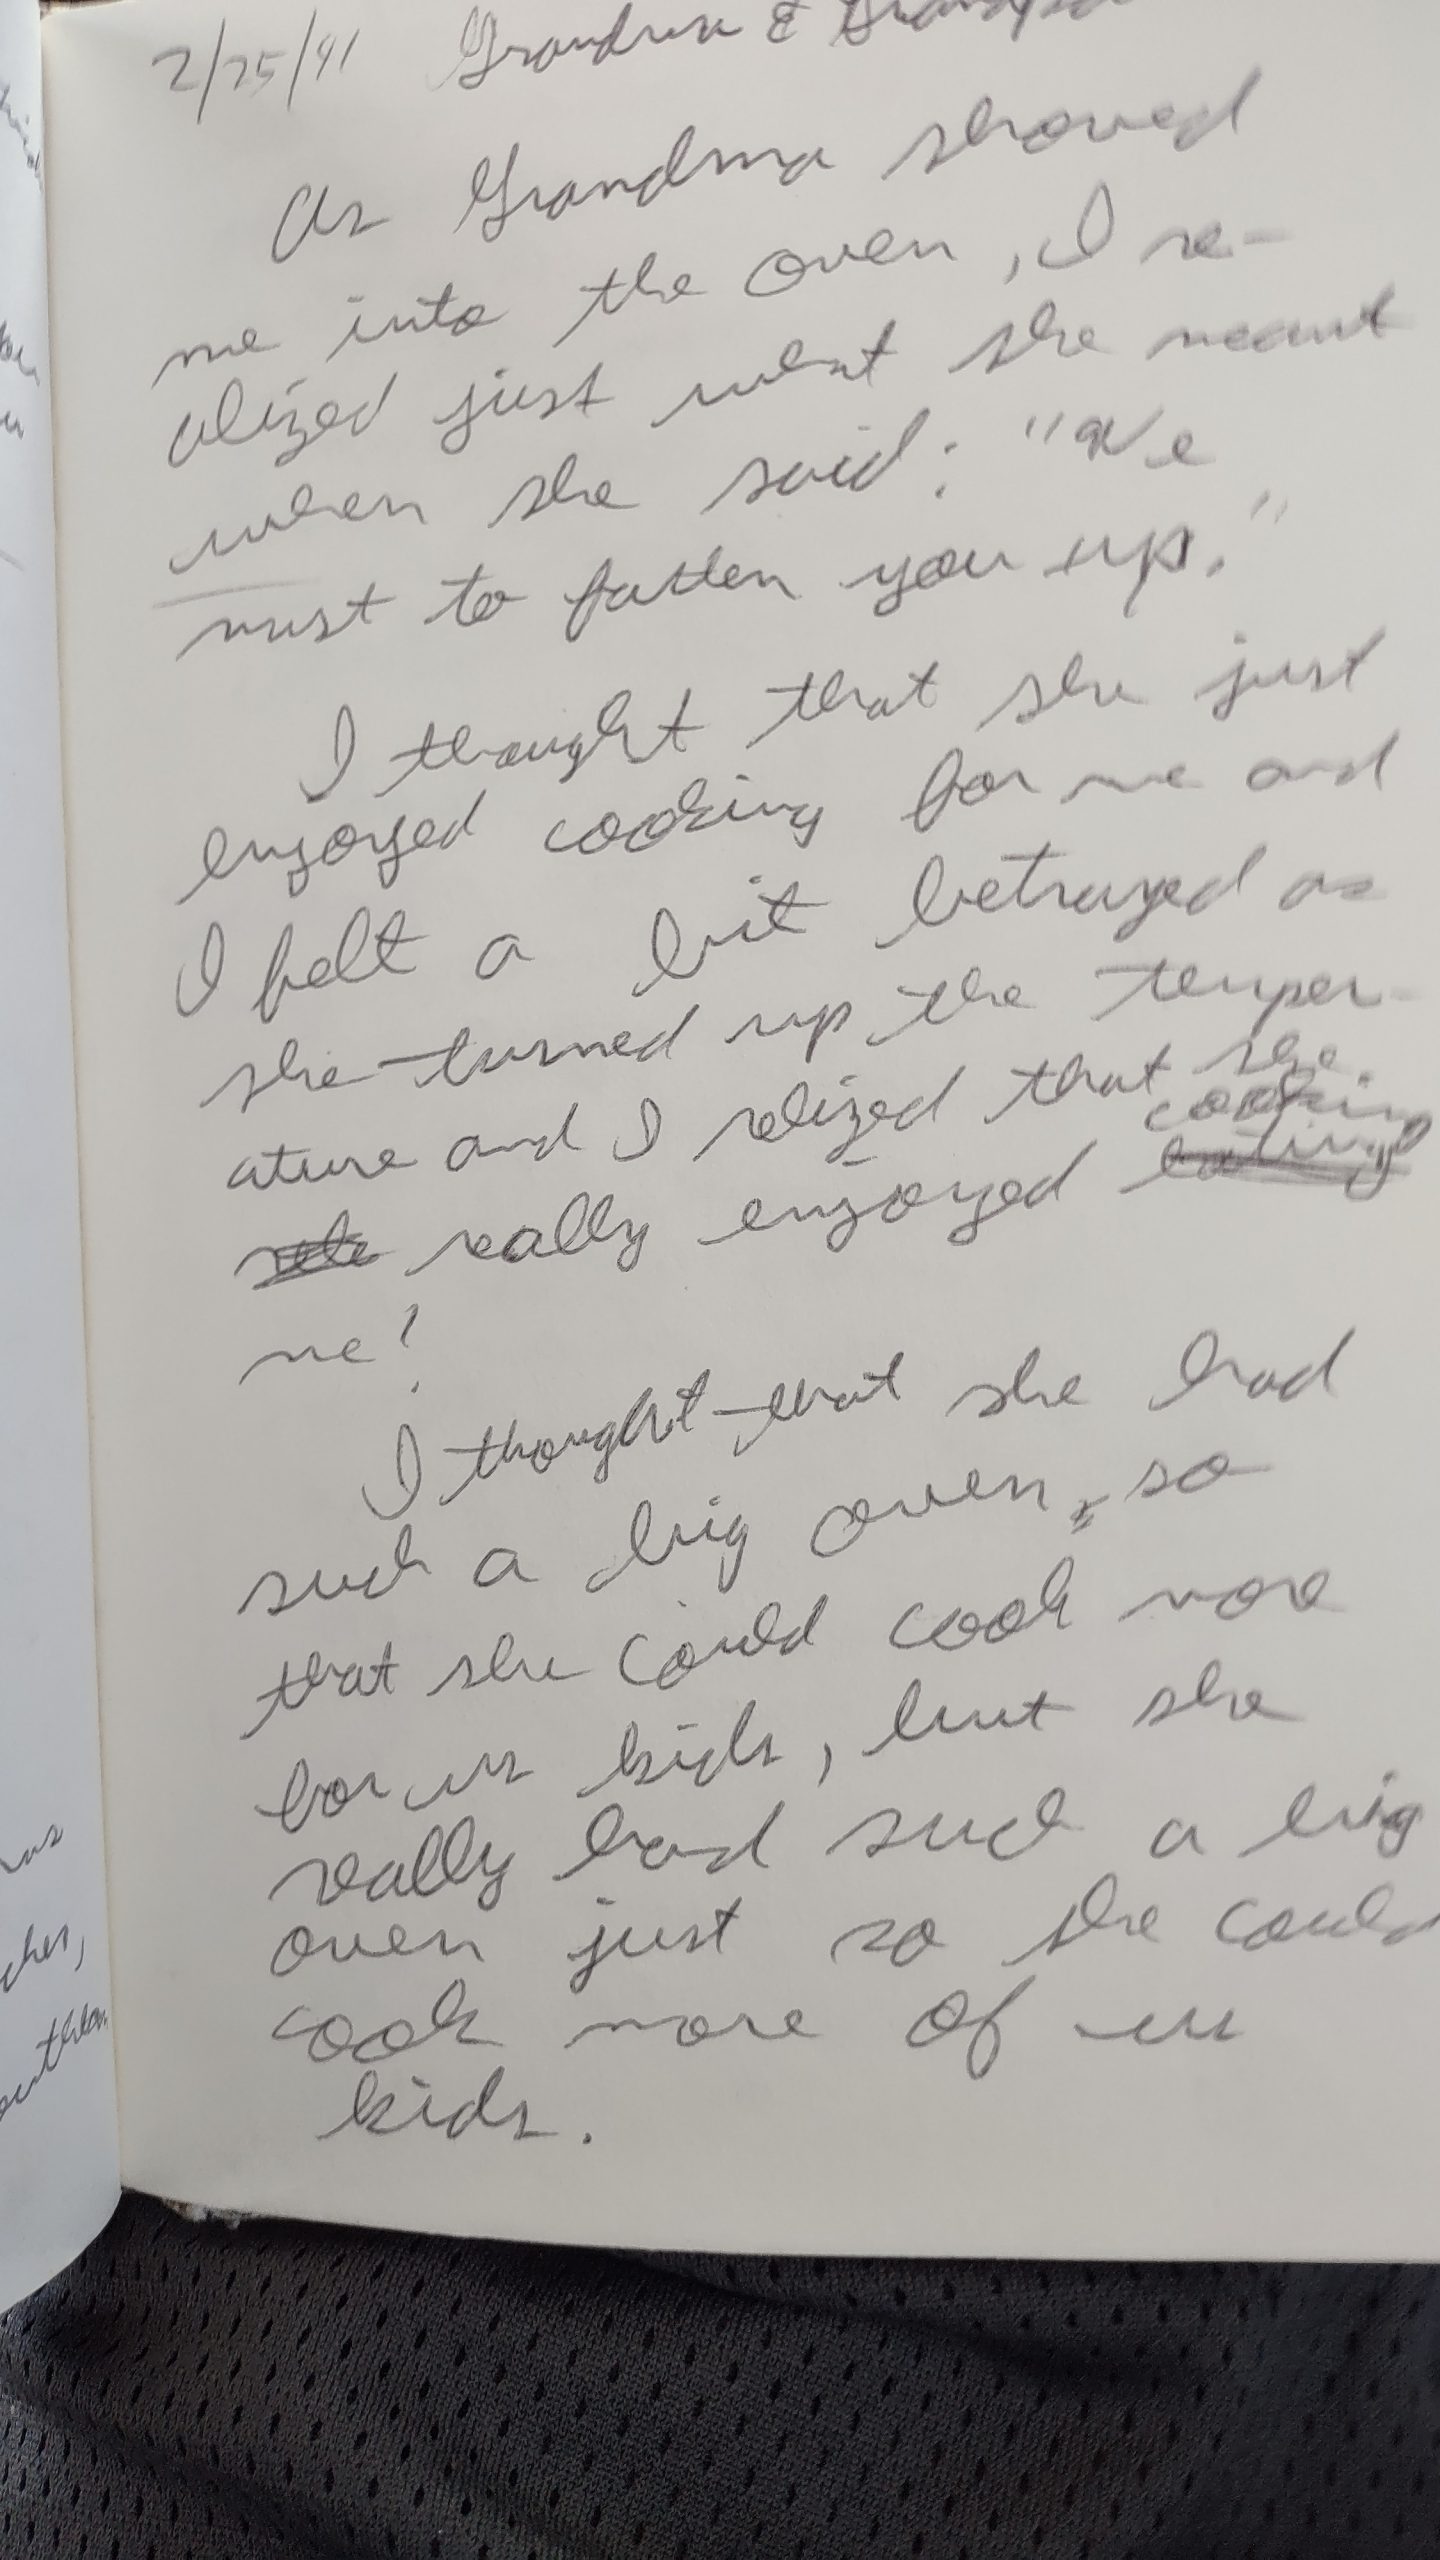 2/25/91 Grandma & Grandpa
As Grandma shoved
me into the oven, I re-
alized just what she meant
when she said: "We
must to fatten you up."
I thought that she just
enjoyed cooking for me and
I felt a bit betrayed as
she turned up the temper-
ature and I relized that she
cooking
really enjoyed eating
me!
I thought that she had
such a big oven, so
that she could cook more
for us kids, but she
really had such a big
oven just so she could
cook more of us
kids.